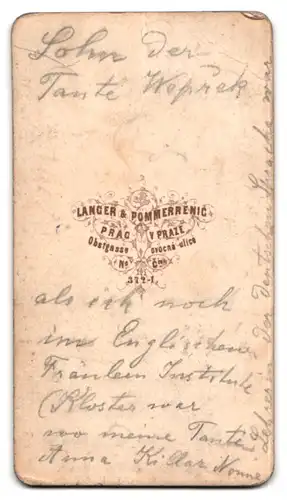 Sohn der
Tante Weprek
LANGER & POMMERRENIG
PRAG V PRAZE
Obstgasse ovocná ulice
No Čís.
377-1.
als ich noch
im Englischen
Fräulein Institute
(Kloster war
wo meine Tante
Anna Killar Nonne
Lehrerin der deutsch. Sprache war